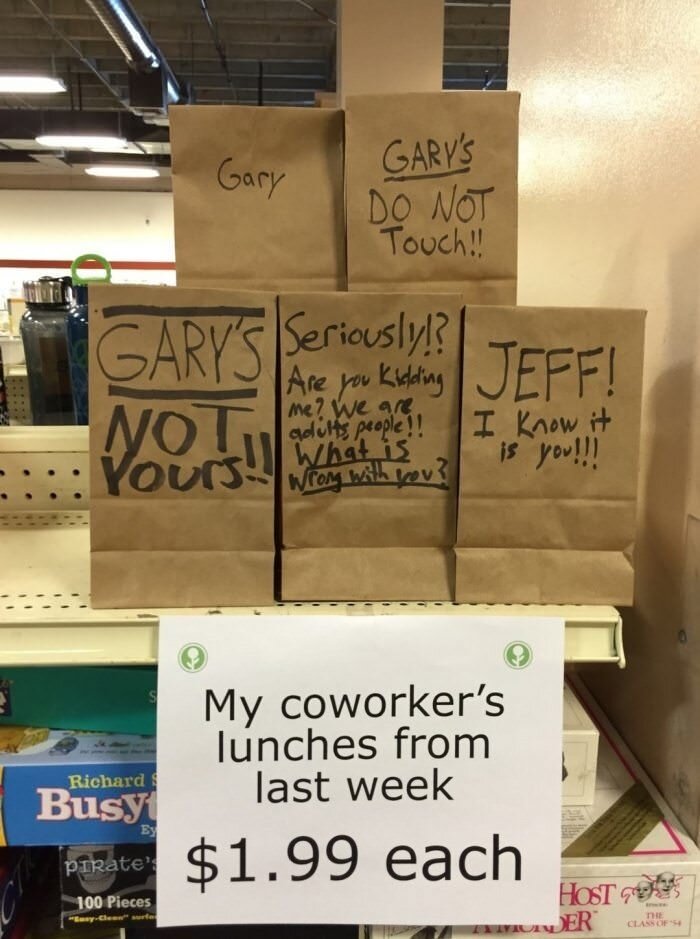 Gary
GARY'S
DO NOT
Touch!!
GARY'S
NOT
Yours!!
Seriously!?
Are you Kidding
me? We are
adults people!!
What is
Wrong with you?
JEFF!
I Know it
is you!!!
My coworker's
lunches from
last week
$1.99 each
Richard S
Busyt
Ey
pirate's
100 Pieces
"Easy-Clean" surfa
HOST
A MURDER
THE
CLASS OF '54